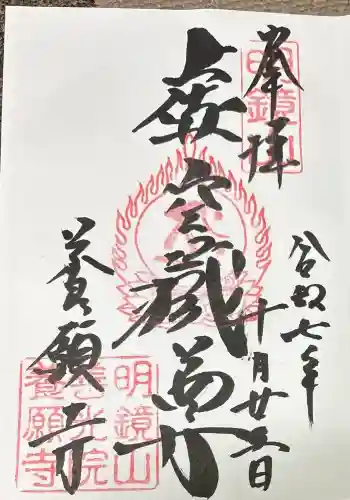 奉拝
令和七年
十月廿五日
虚空蔵尊
養願寺
明鏡山
明鏡山
善光院
養願寺